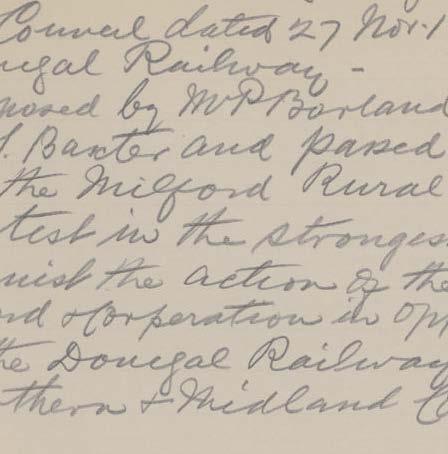 Council dated 27 Nov. 1
negal Railway -
posed by Mr P Borland
S. Baxter and passed
the Milford Rural
test in the stronges
ainst the action of the
rd & Corperation in opp
the Donegal Railway
rthern & Midland C